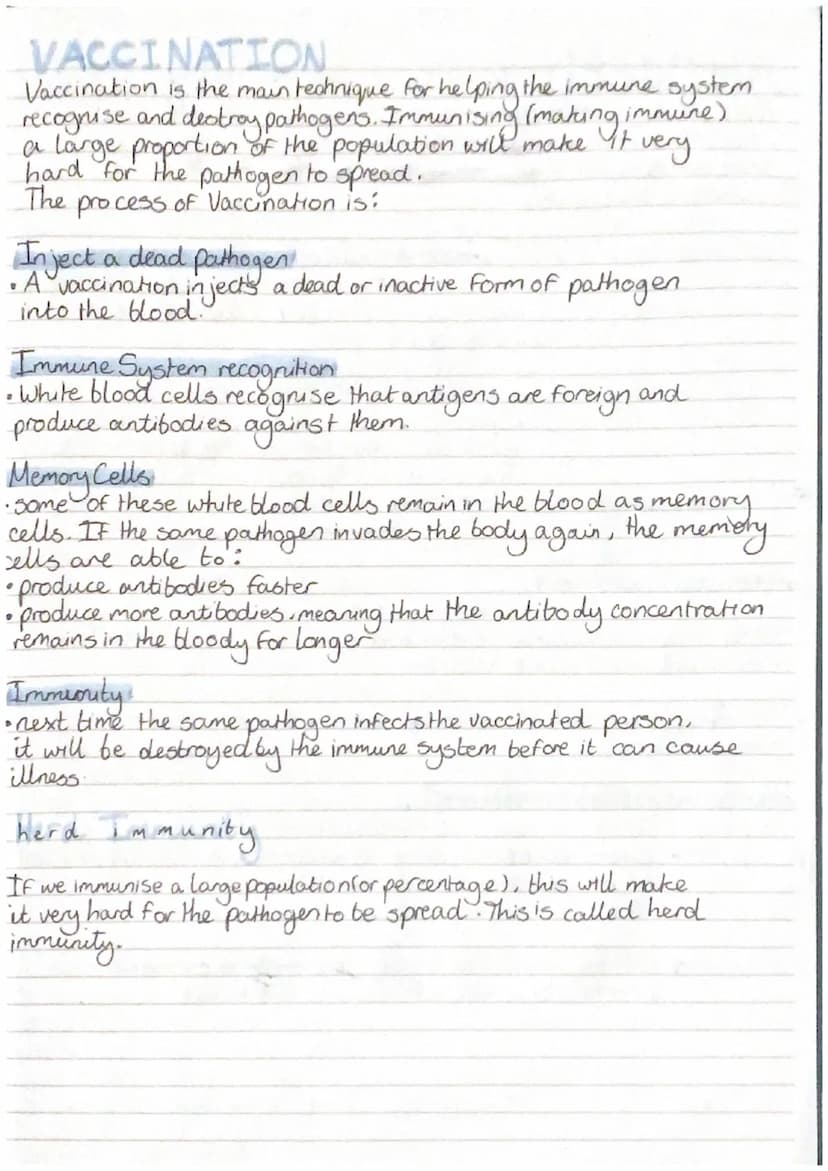 VACCINATION
Vaccination is the main technique for helping the immune system
recognise and destroy pathogens. Immunising (making immune)
a large proportion of the population will make it very
hard for the pathogen to spread.
The process of Vaccination is:
Inject a dead pathogen
• A vaccination injects a dead or inactive form of pathogen
into the blood.
Immune System recognition
• White blood cells recognise that antigens are foreign and
produce antibodies against them.
Memory Cells
• some of these white blood cells remain in the blood as memory
cells. If the same pathogen invades the body again, the memory
cells are able to:
• produce antibodies faster
• produce more antibodies, meaning that the antibody concentration
remains in the bloody for longer
Immunity
• next time the same pathogen infects the vaccinated person,
it will be destroyed by the immune system before it can cause
illness
herd immunity
If we immunise a large population (or percentage), this will make
it very hard for the pathogen to be spread. This is called herd
immunity.